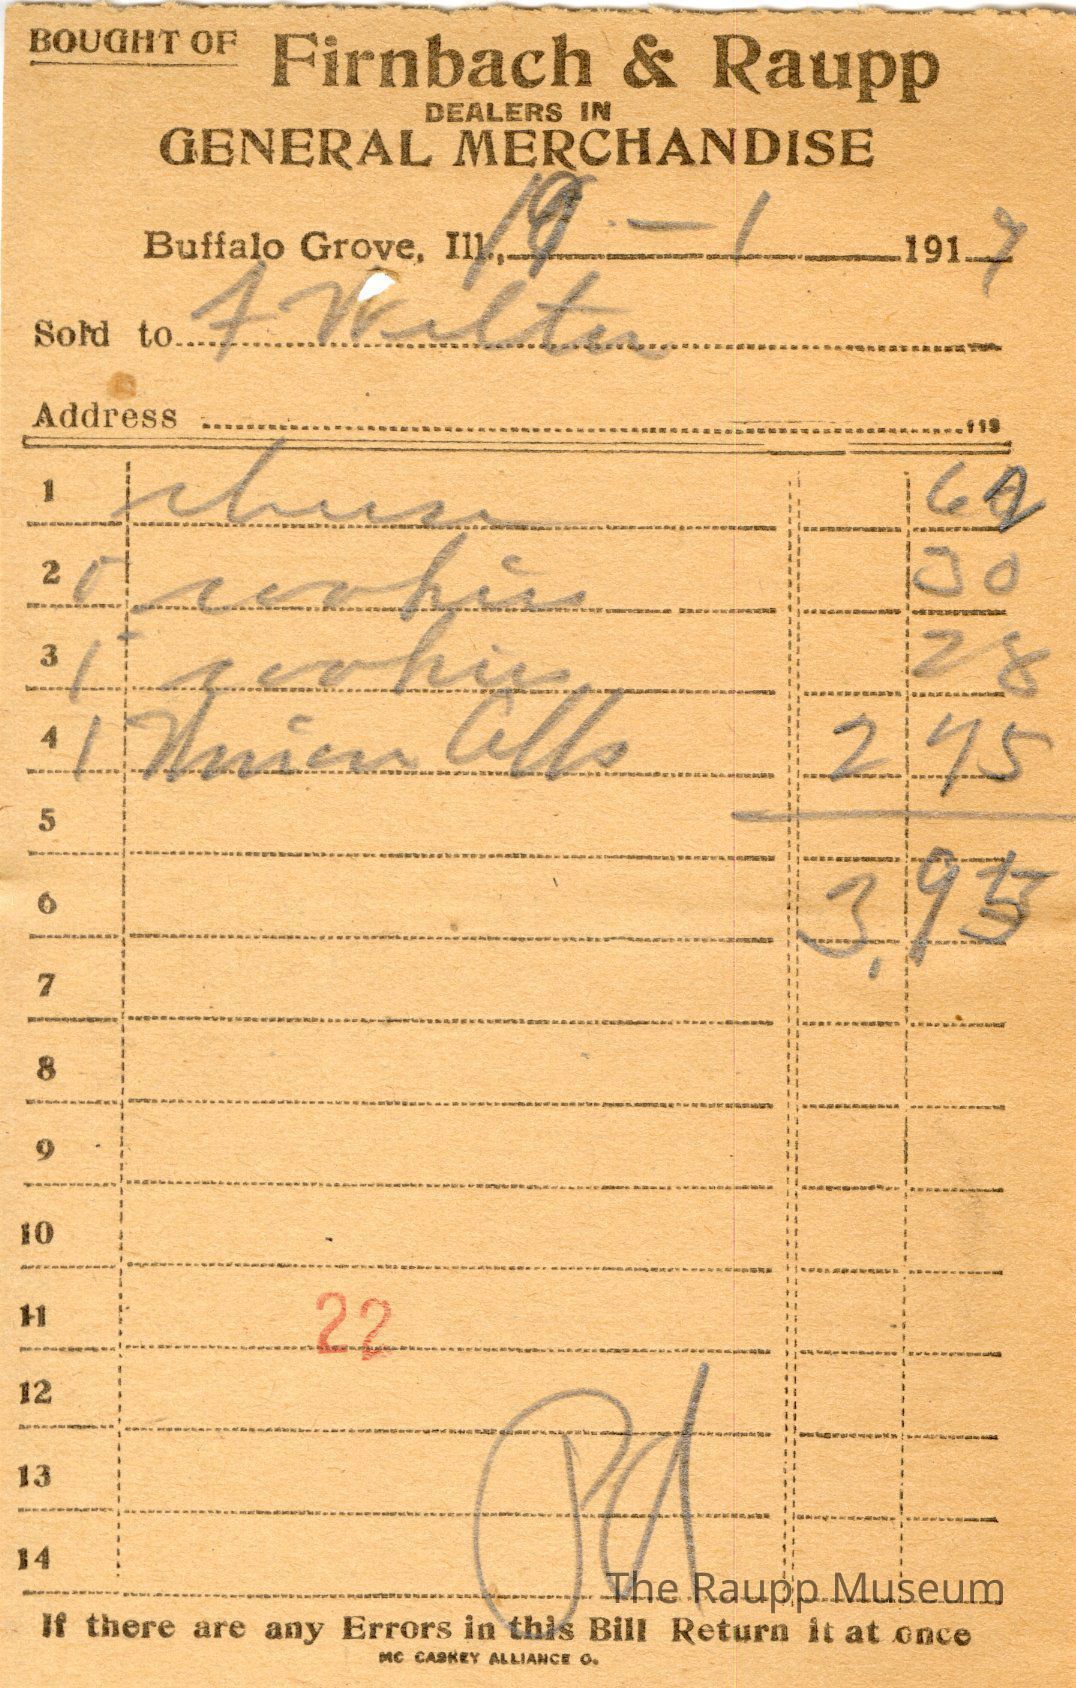 BOUGHT OF Firnbach & Raupp
DEALERS IN
GENERAL MERCHANDISE
Buffalo Grove, Ill., 19 - 1 1917
Sold to Welter
Address 119
1 cheese 62
2 cookies 30
3 1 cookies 28
4 1 Union Alls 2 75
5
6 3,95
7
8
9
10
11 22
12
13 Pd
14
The Raupp Museum
If there are any Errors in this Bill Return it at once
MC CASKEY ALLIANCE O.